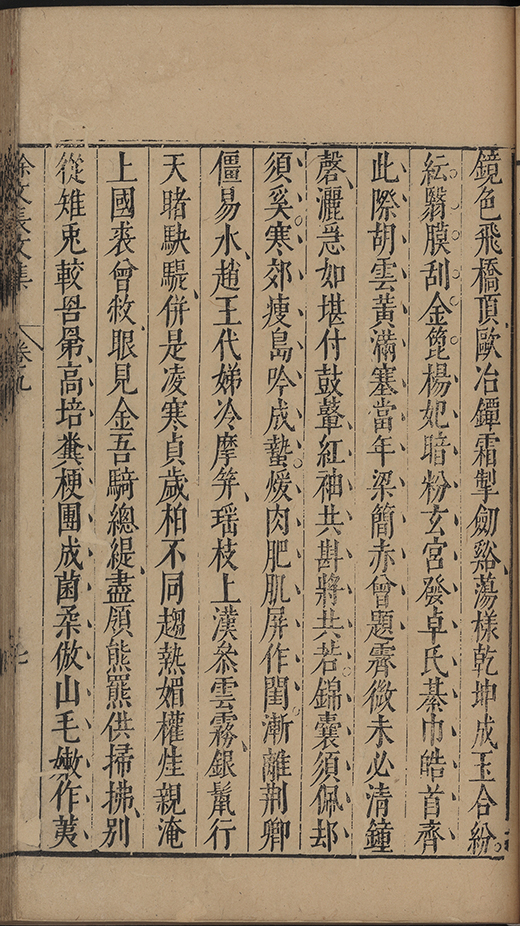 鏡色飛橋頂歐冶鐔霜掣劒谿蕩樣乾坤成玉合紛
紜翳膜刮金篦楊妃暗粉玄宮發卓氏綦巾皓首齊
此際胡雲黃滿塞當年梁簡赤曾題霽微未必清鐘
磬灑急如堪付鼓鼙紅袖共斟將共若錦囊須佩却
須奚寒郊瘦島吟成蟄煖肉肥肌屏作閨漸離荆卿
僵易水趙王代娣冷摩笄瑶枝上漢叅雲霧銀氂行
天睹駃騠併是凌寒貞歲柏不同趨熱媚權烓親淹
上國裘曾敉眼見金吾騎總緹盡領熊羆供掃拂别
從雉兎較罟第高培糞梗團成菌柔倣山毛嫩作荑
徐文長文集
卷九